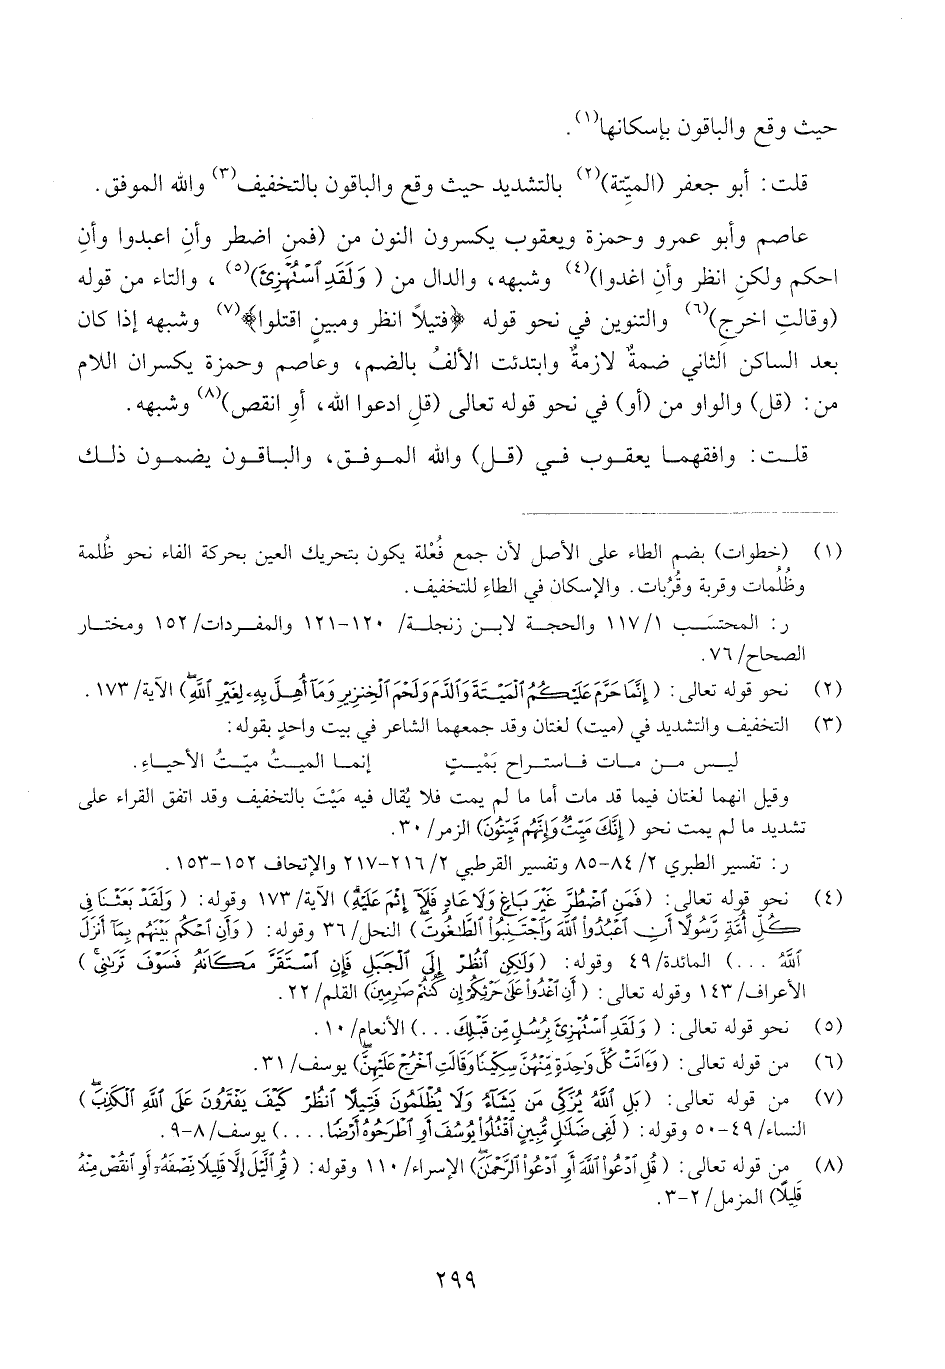 حيث وقع والباقون بإسكانها(١).
قلت: أبو جعفر (الميِّتة)(٢) بالتشديد حيث وقع والباقون بالتخفيف(٣) والله الموفق.
عاصم وأبو عمرو وحمزة ويعقوب يكسرون النون من (فمنِ اضطر وأنِ اعبدوا وأنِ
احكم ولكنِ انظر وأنِ اغدوا)(٤) وشبهه، والدال من ( وَلَقَدِ ٱسْتُهْزِئَ)(٥) ، والتاء من قوله
(وقالتِ اخرج)(٦) والتنوين في نحو قوله ﴿فتيلاً انظر ومبينٍ اقتلوا﴾(٧) وشبهه إذا كان
بعد الساكن الثاني ضمةٌ لازمةٌ وابتدئت الألفُ بالضم، وعاصم وحمزة يكسران اللام
من: (قل) والواو من (أو) في نحو قوله تعالى (قلِ ادعوا الله، أوِ انقص)(٨) وشبهه.
قلت: وافقهما يعقوب في (قل) والله الموفق، والباقون يضمون ذلك
(١) (خطوات) بضم الطاء على الأصل لأن جمع فُعْلة يكون بتحريك العين بحركة الفاء نحو ظُلمة
وظُلُمات وقربة وقُرُبات. والإسكان في الطاءِ للتخفيف.
ر: المحتسَب ١١٧/١ والحجة لابن زنجلة/ ١٢٠-١٢١ والمفردات/ ١٥٢ ومختار
الصحاح/ ٧٦.
(٢) نحو قوله تعالى: ( إِنَّمَا حَرَّمَ عَلَيْكُمُ ٱلْمَيْتَةَ وَٱلدَّمَ وَلَحْمَ ٱلْخِنزِيرِ وَمَآ أُهِلَّ بِهِۦ لِغَيْرِ ٱللَّهِۖ) الآية/ ١٧٣ .
(٣) التخفيف والتشديد في (ميت) لغتان وقد جمعهما الشاعر في بيت واحدٍ بقوله:
ليس من مات فاستراح بَمْيتٍ إنما الميتُ ميّتُ الأحياءِ.
وقيل انهما لغتان فيما قد مات أما ما لم يمت فلا يُقال فيه مَيْتَ بالتخفيف وقد اتفق القراء على
تشديد ما لم يمت نحو ( إِنَّكَ مَيِّتٌ وَإِنَّهُم مَّيِّتُونَ) الزمر/ ٣٠.
ر: تفسير الطبري ٢/ ٨٤-٨٥ وتفسير القرطبي ٢/ ٢١٦-٢١٧ والإتحاف ١٥٢-١٥٣.
(٤) نحو قوله تعالى: (فَمَنِ ٱضْطُرَّ غَيْرَ بَاغٍ وَلَا عَادٍ فَلَآ إِثْمَ عَلَيْهِ) الآية/ ١٧٣ وقوله: ( وَلَقَدْ بَعَثْنَا فِى
كُلِّ أُمَّةٍ رَّسُولًا أَنِ ٱعْبُدُوا۟ ٱللَّهَ وَٱجْتَنِبُوا۟ ٱلطَّٰغُوتَ) النحل/ ٣٦ وقوله: ( وَأَنِ ٱحْكُم بَيْنَهُم بِمَآ أَنزَلَ
ٱللَّهُ ...) المائدة/ ٤٩ وقوله: (وَلَٰكِنِ ٱنظُرْ إِلَى ٱلْجَبَلِ فَإِنِ ٱسْتَقَرَّ مَكَانَهُۥ فَسَوْفَ تَرَىٰنِى )
الأعراف/ ١٤٣ وقوله تعالى: ( أَنِ ٱغْدُوا۟ عَلَىٰ حَرْثِكُمْ إِن كُنتُمْ صَٰرِمِينَ) القلم/ ٢٢.
(٥) نحو قوله تعالى: ( وَلَقَدِ ٱسْتُهْزِئَ بِرُسُلٍ مِّن قَبْلِكَ ...) الأنعام/ ١٠.
(٦) من قوله تعالى: (وَءَاتَتْ كُلَّ وَٰحِدَةٍ مِّنْهُنَّ سِكِّينًا وَقَالَتِ ٱخْرُجْ عَلَيْهِنَّ) يوسف/ ٣١.
(٧) من قوله تعالى: (بَلِ ٱللَّهُ يُزَكِّى مَن يَشَآءُ وَلَا يُظْلَمُونَ فَتِيلًا ٱنظُرْ كَيْفَ يَفْتَرُونَ عَلَى ٱللَّهِ ٱلْكَذِبَ)
النساء/ ٤٩-٥٠ وقوله: ( لَفِى ضَلَٰلٍ مُّبِينٍ ٱقْتُلُوا۟ يُوسُفَ أَوِ ٱطْرَحُوهُ أَرْضًا....) يوسف/ ٨-٩.
(٨) من قوله تعالى: ( قُلِ ٱدْعُوا۟ ٱللَّهَ أَوِ ٱدْعُوا۟ ٱلرَّحْمَٰنَ) الإسراء/ ١١٠ وقوله: ( قُمِ ٱلَّيْلَ إِلَّا قَلِيلًا نِّصْفَهُۥٓ أَوِ ٱنقُصْ مِنْهُ
قَلِيلًا) المزمل/ ٢-٣.
٢٩٩